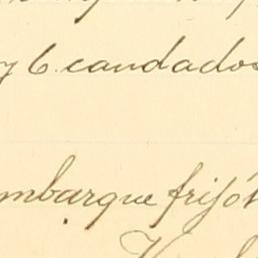 y 6 candados
mbarque frijó